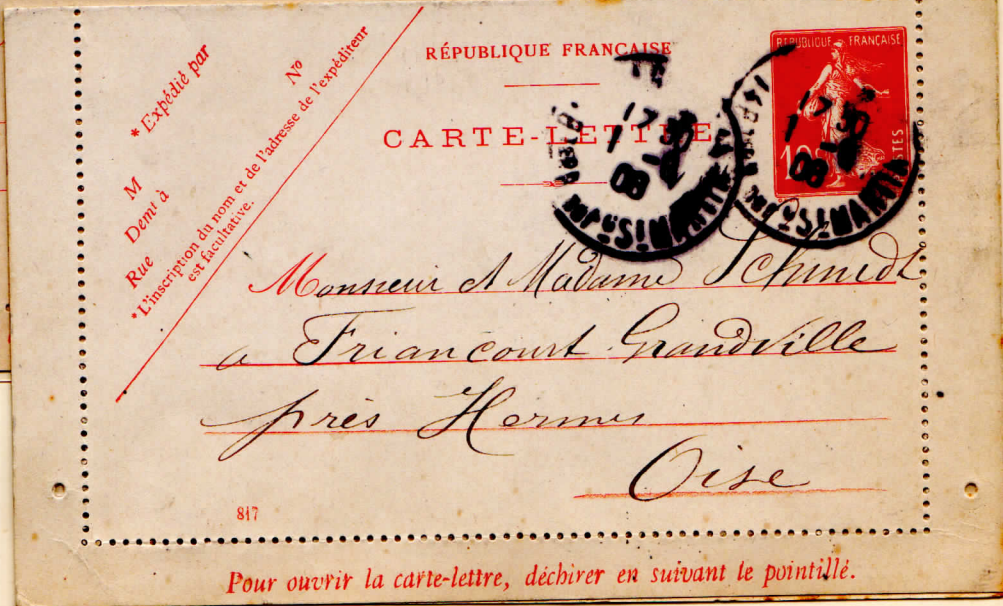 RÉPUBLIQUE FRANÇAISE
CARTE-LETTRE
* Expédié par
N°
M
Demt à
Rue
* L'inscription du nom et de l'adresse de l'expéditeur
est facultative.
REPUBLIQUE FRANÇAISE
10c
POSTES
17 30
1
08
ST MARTIN
17 30
1
08
ST MARTIN
Monsieur et Madame Schmidt
a Friancourt Grandville
près Hermes
Oise
817
Pour ouvrir la carte-lettre, déchirer en suivant le pointillé.